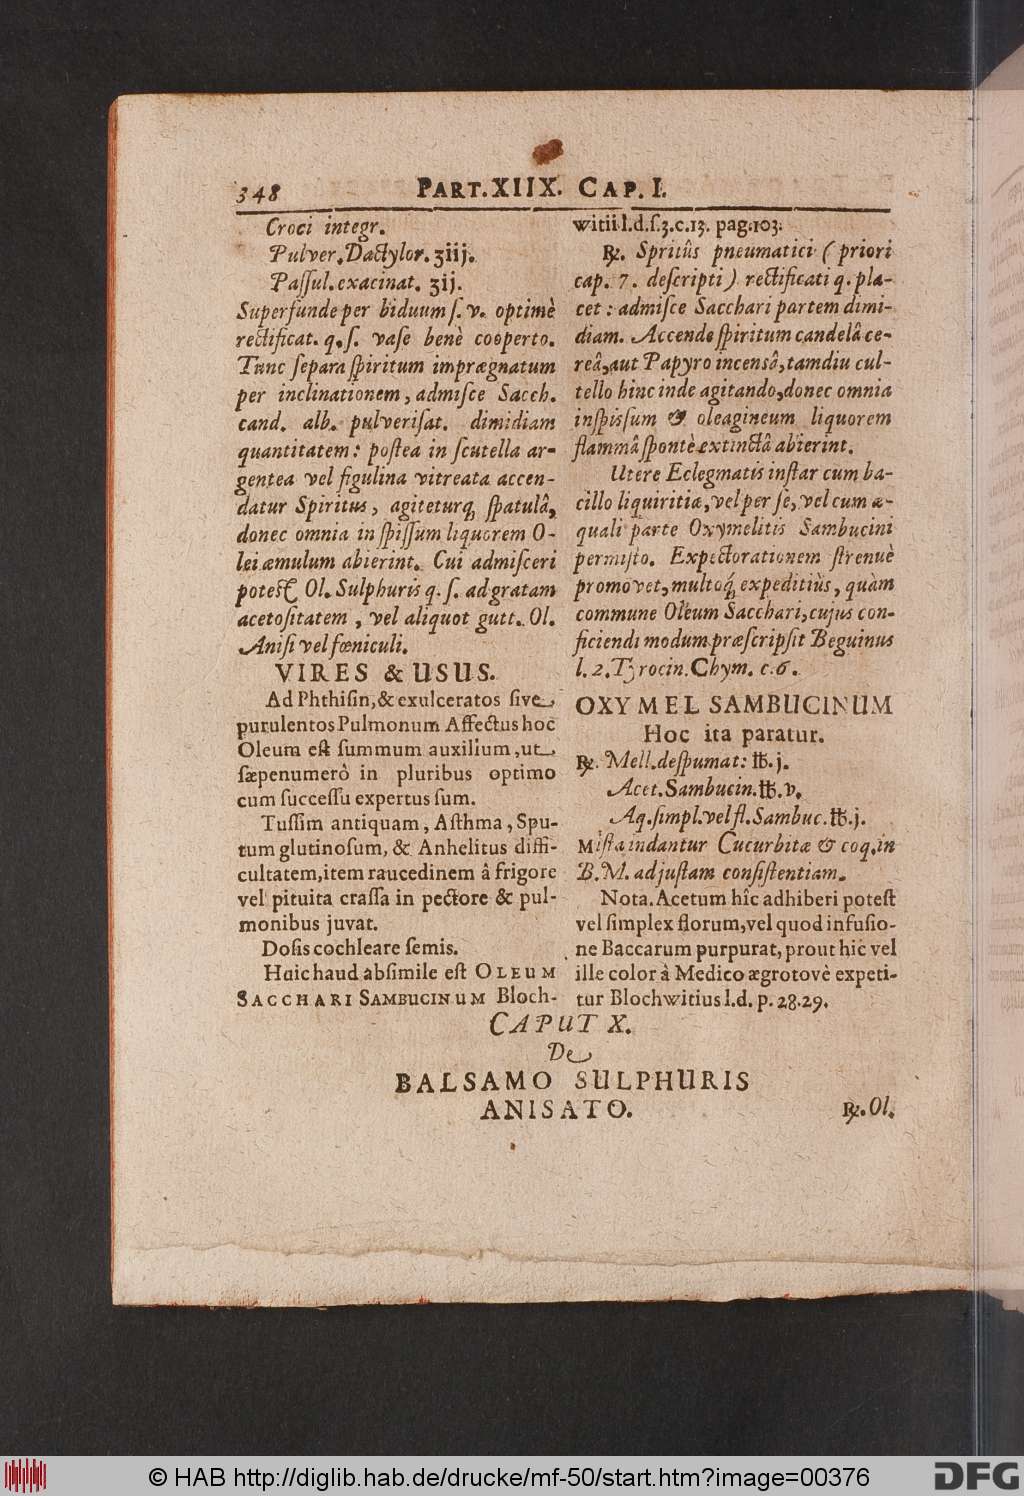 348 PART. XIIX. CAP. I.
Croci integr.
Pulver. Dactylor. ʒiij.
Paſſul. exacinat. ʒij.
Superfunde per biduum ſ. v. optimè
rectificat. q. ſ. vaſe benè cooperto.
Tunc ſepara ſpiritum imprægnatum
per inclinationem, admiſce Sacch.
cand. alb. pulveriſat. dimidiam
quantitatem: poſtea in ſcutella ar-
gentea vel figulina vitreata accen-
datur Spiritus, agiteturq́; ſpatulâ,
donec omnia in ſpiſſum liquorem O-
lei æmulum abierint. Cui admiſceri
poteſt Ol. Sulphuris q. ſ. ad gratam
acetoſitatem, vel aliquot gutt. Ol.
Aniſi vel fœniculi.
VIRES & USUS.
Ad Phthiſin, & exulceratos ſive
purulentos Pulmonum Affectus hoc
Oleum eſt ſummum auxilium, ut
ſæpenumerò in pluribus optimo
cum ſucceſſu expertus ſum.
Tuſſim antiquam, Aſthma, Spu-
tum glutinoſum, & Anhelitus diffi-
cultatem, item raucedinem â frigore
vel pituita craſſa in pectore & pul-
monibus juvat.
Doſis cochleare ſemis.
Huic haud abſimile eſt OLEUM
SACCHARI SAMBUCINUM Bloch-
witii l. d. ſ. 3. c. 13. pag. 103.
℞. Spritûs pneumatici (priori
cap. 7. deſcripti) rectificati q. pla-
cet: admiſce Sacchari partem dimi-
diam. Accende ſpiritum candelâ ce-
reâ, aut Papyro incensâ, tamdiu cul-
tello hinc inde agitando, donec omnia
inſpisſum & oleagineum liquorem
flammâ ſpontè extinctâ abierint.
Utere Eclegmatis inſtar cum ba-
cillo liquiritiæ, vel per ſe, vel cum æ-
quali parte Oxymelitis Sambucini
permiſto. Expectorationem ſtrenuè
promovet, multoq́; expeditiùs, quàm
commune Oleum Sacchari, cujus con-
ficiendi modum præſcripſit Beguinus
l. 2. Tyrocin. Chym. c. 6.
OXYMEL SAMBUCINUM
Hoc ita paratur.
℞. Mell. deſpumat: ℔. j.
Acet. Sambucin. ℔. v.
Aq. ſimpl. vel fl. Sambuc. ℔. j.
Miſta indantur Cucurbitæ & coq. in
B. M. ad juſtam conſiſtentiam.
Nota. Acetum hîc adhiberi poteſt
vel ſimplex florum, vel quod infuſio-
ne Baccarum purpurat, prout hic vel
ille color à Medico ægrotovè expeti-
tur Blochwitius l. d. p. 28. 29.
CAPUT X.
De
BALSAMO SULPHURIS
ANISATO.
℞. Ol.
© HAB http://diglib.hab.de/drucke/mf-50/start.htm?image=00376
DFG